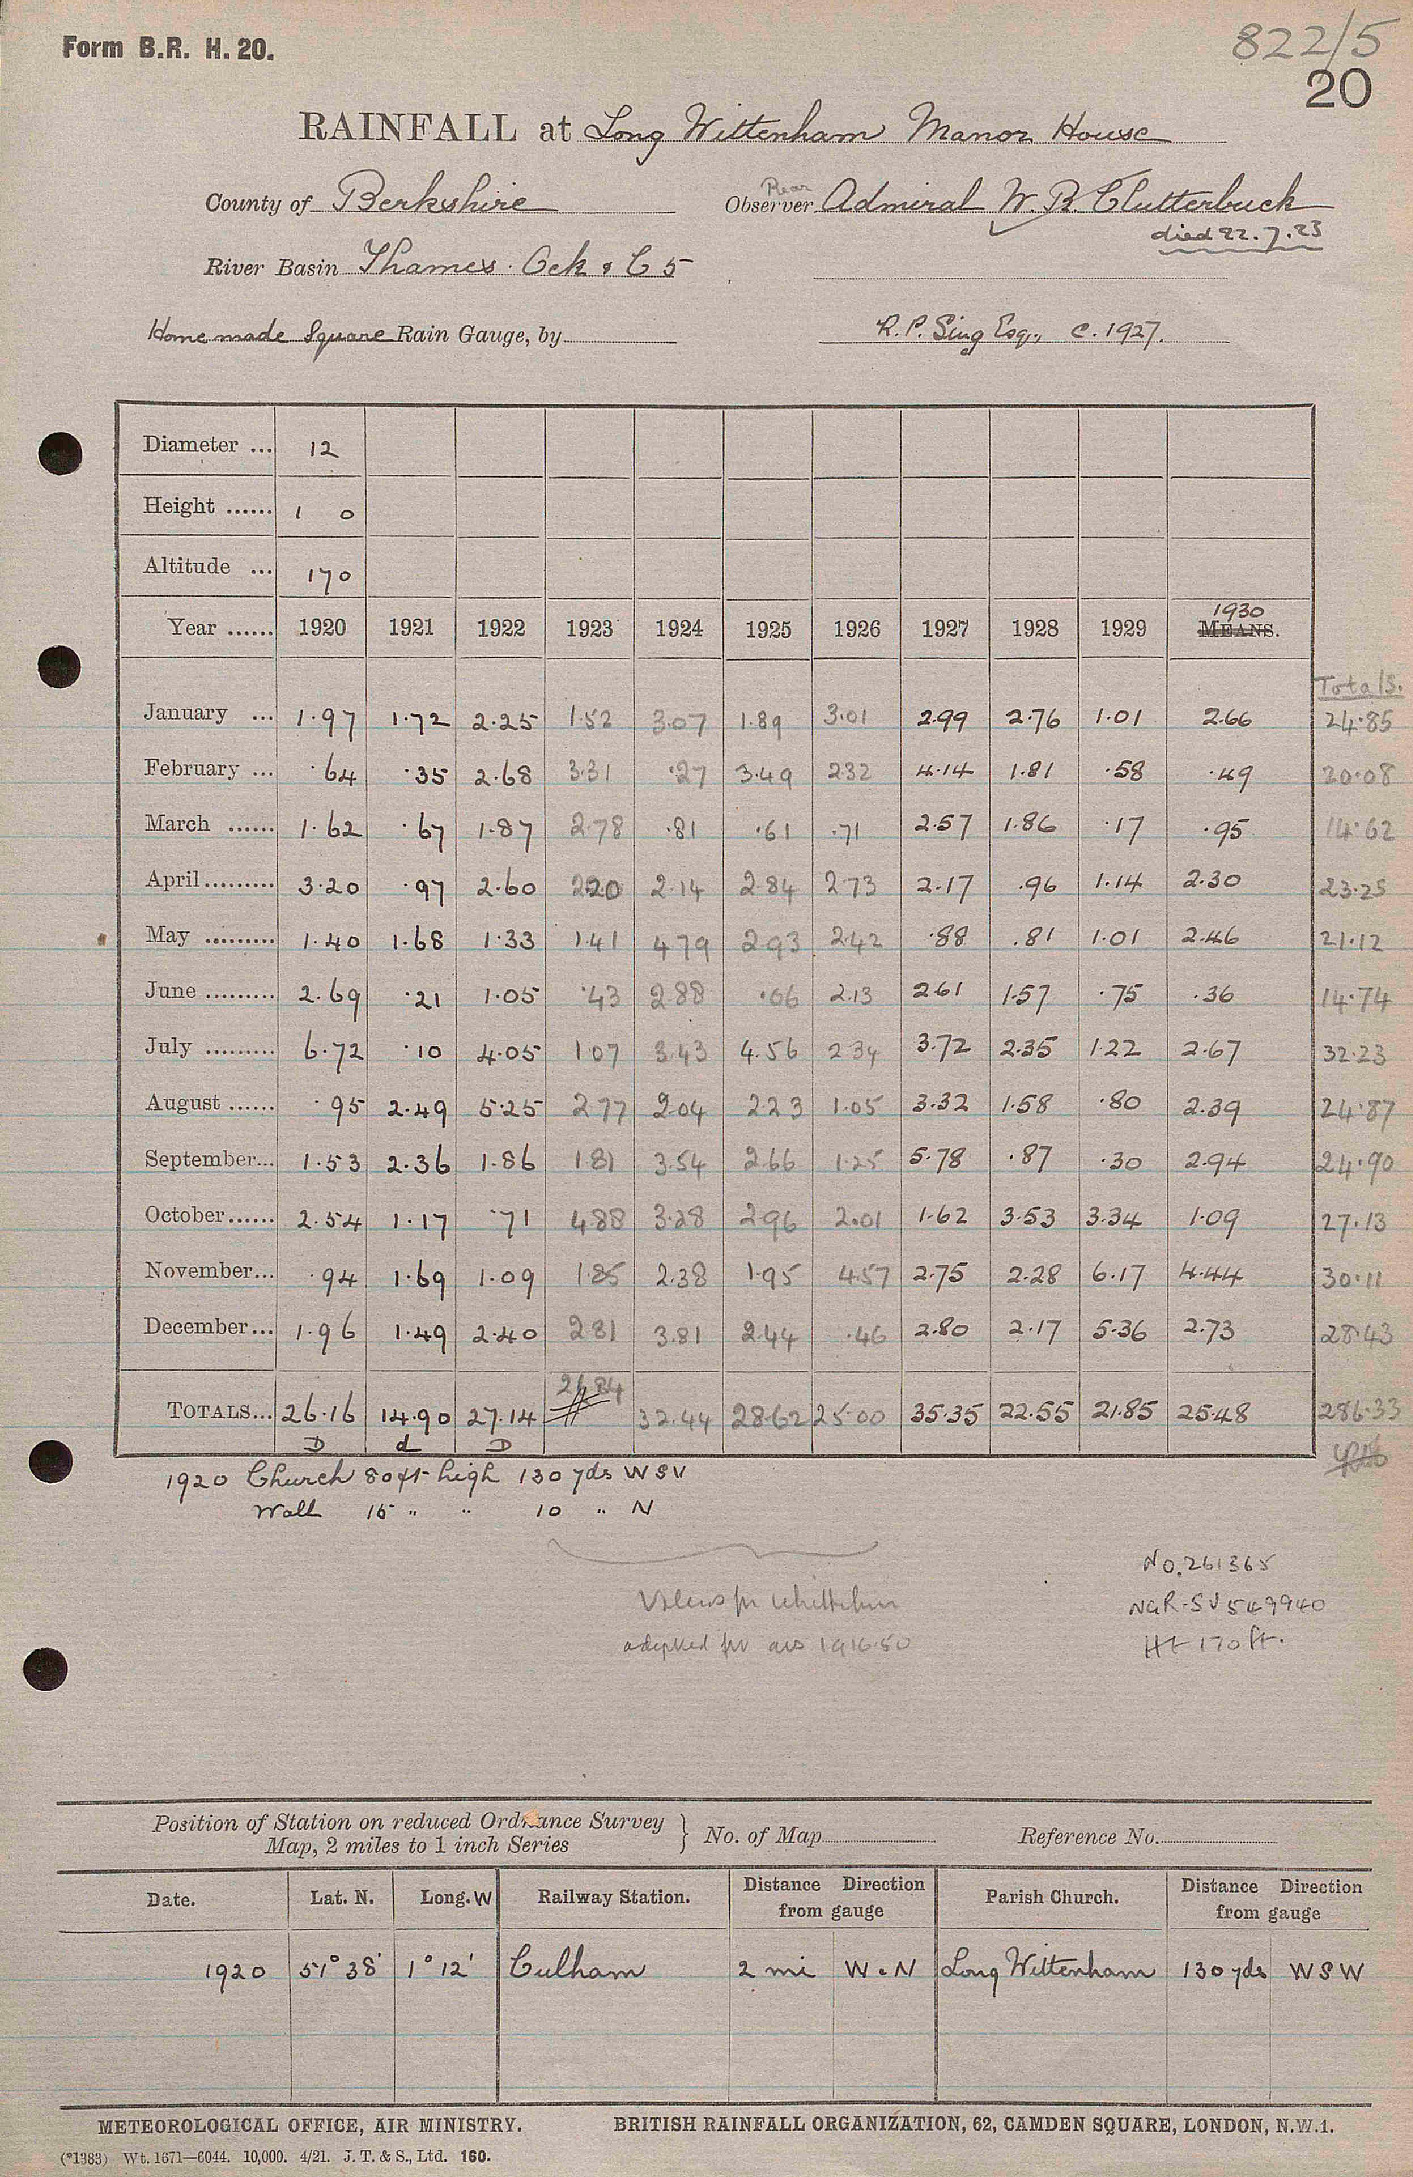 Form B.R. H. 20.
822/5
20
RAINFALL at Long Wittenham Manor House
County of Berkshire Observer Rear Admiral W. B. Clutterbuck
died 22.7.23
River Basin Thames. Ock & C 5
Home made Square Rain Gauge, by R. P. Sing Esq., c. 1927.
Diameter ... 12
Height ...... 1 0
Altitude ... 170
Year ...... 1920 1921 1922 1923 1924 1925 1926 1927 1928 1929 1930 MEANS.
Totals.
January ... 1.97 1.72 2.25 1.52 3.07 1.89 3.01 2.99 2.76 1.01 2.66 24.85
February ... .64 .35 2.68 3.31 .27 3.49 2.32 4.14 1.81 .58 .49 20.08
March ...... 1.62 .67 1.87 2.78 .81 .61 .71 2.57 1.86 .17 .95 14.62
April ......... 3.20 .97 2.60 2.20 2.14 2.84 2.73 2.17 .96 1.14 2.30 23.25
May ......... 1.40 1.68 1.33 1.41 4.79 2.93 2.42 .88 .81 1.01 2.46 21.12
June ......... 2.69 .21 1.05 .43 2.88 .06 2.13 2.61 1.57 .75 .36 14.74
July ......... 6.72 .10 4.05 1.07 3.43 4.56 2.34 3.72 2.35 1.22 2.67 32.23
August ...... .95 2.49 5.25 2.77 2.04 2.23 1.05 3.32 1.58 .80 2.39 24.87
September... 1.53 2.36 1.86 1.81 3.54 2.66 1.25 5.78 .87 .30 2.94 24.90
October...... 2.54 1.17 .71 4.88 3.28 2.96 2.01 1.62 3.53 3.34 1.09 27.13
November... .94 1.69 1.09 1.85 2.38 1.95 4.57 2.75 2.28 6.17 4.44 30.11
December... 1.96 1.49 2.40 2.81 3.81 2.44 .46 2.80 2.17 5.36 2.73 28.43
26.84
TOTALS... 26.16 14.90 27.14 32.44 28.62 25.00 35.35 22.55 21.85 25.48 286.33
D d D
1920 Church 80 ft high 130 yds WSW
Wall 15 " " 10 " N
No. 261365
NGR - SU 549940
Ht 170 ft.
adopted for avs 1916-50
Position of Station on reduced Ordnance Survey
Map, 2 miles to 1 inch Series } No. of Map Reference No.
Date. Lat. N. Long. W Railway Station. Distance Direction from gauge Parish Church. Distance Direction from gauge
1920 51° 38' 1° 12' Culham 2 mi W. N Long Wittenham 130 yds WSW
METEOROLOGICAL OFFICE, AIR MINISTRY. BRITISH RAINFALL ORGANIZATION, 62, CAMDEN SQUARE, LONDON, N.W.1.
(*1383) Wt. 1671—6044. 10,000. 4/21. J. T. & S., Ltd. 160.